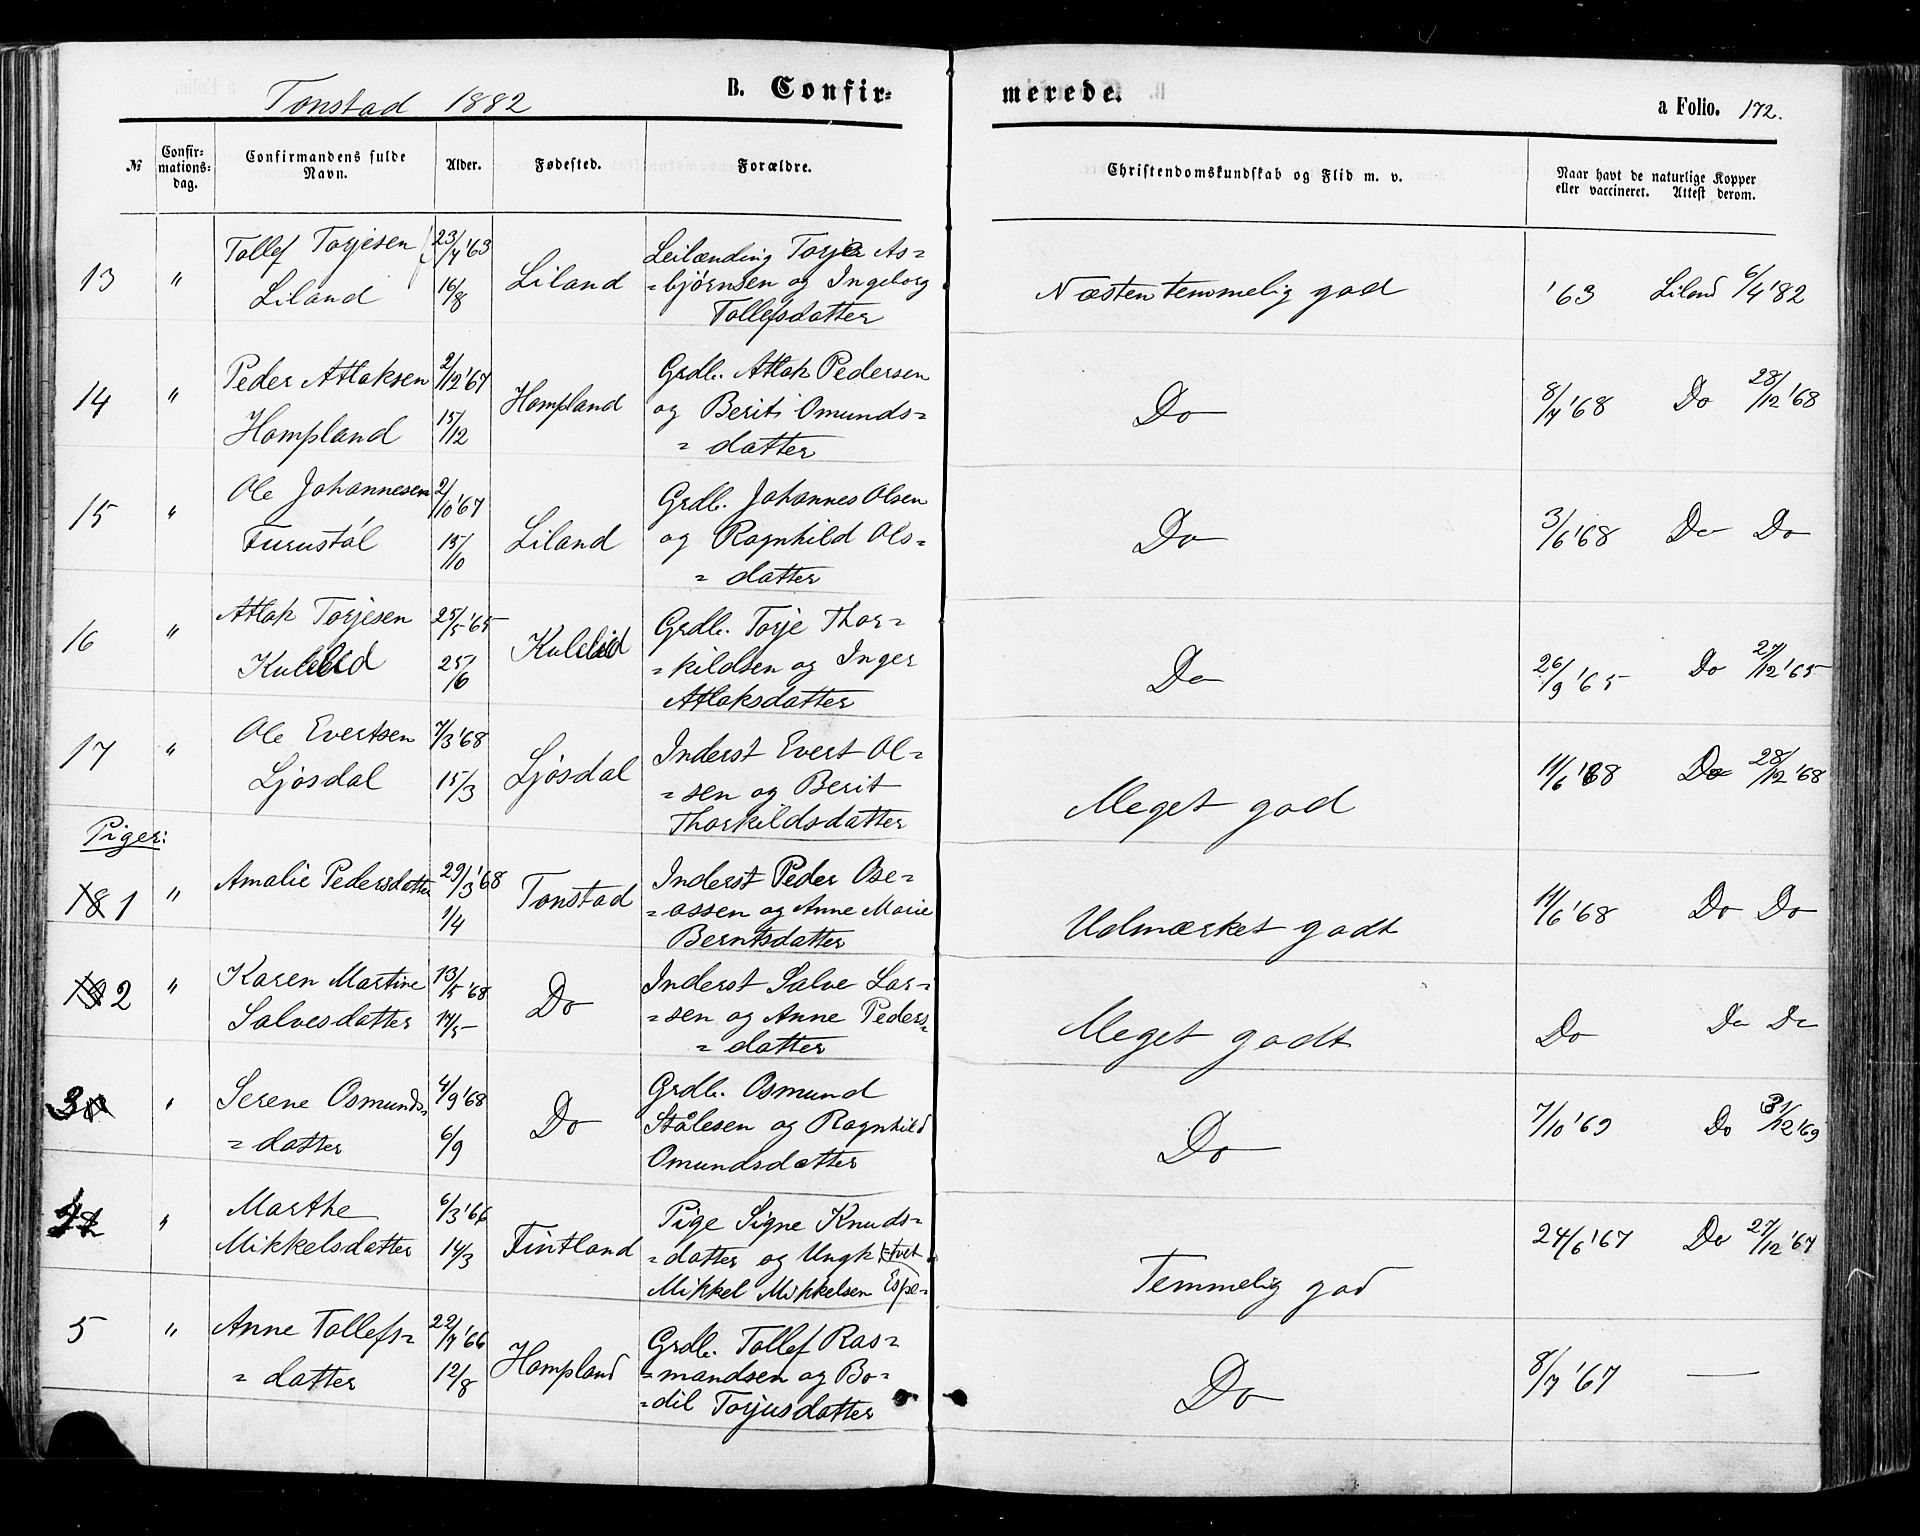 Tonstad 1882
B. Confir-
merede.
a Folio. 172.
№
Confir-
mations-
dag.
Confirmandens fulde
Navn.
Alder.
Fødested.
Forældre.
Christendomskundskab og Flid m. v.
Naar havt de naturlige Kopper
eller vaccineret. Attest derom.
13 " Tollef Torjesen 23/7 '63 Leilænding Torje As=
Liland 16/8 Liland =bjørnsen og Ingeborg Næsten temmelig god '63 Liland 6/4 '82
Tollefsdatter
14 " Peder Atlaksen 2/12 '67 Hompland Grdb. Atlak Pedersen
Hompland 15/12 og Berit Omunds= Do 8/7 '68 Do 28/12 '68
= datter
15 " Ole Johannesen 2/10 '67 Grdb. Johannes Olsen
Furustøl 15/10 Liland og Ragnhild Ols= Do 3/6 '68 Do Do
= datter
16 " Atlak Torjesen 25/5 '65 Kvlelid Grdb. Torje Thor=
25/6 =kildsen og Inger Do 26/9 '65 Do 27/12 '65
Atlaksdatter
17 " Ole Evertsen 7/3 '68 Inderst Evert Ol=
Ljosdal 15/3 Ljosdal =sen og Berit Meget god 11/6 '68 Do 28/12 '68
Thorkildsdatter
Piger:
1 " Amalie Pedersdatter 29/3 '68 Tonstad Inderst Peder Ose=
1/4 =assen og Anne Marie Udmærket godt 11/6 '68 Do Do
Berntsdatter
2 " Karen Martine 13/5 '68 Do Inderst Salve Lar=
Salvesdatter 14/5 =sen og Anne Peders= Meget godt Do Do Do
= datter
3 " Serene Osmunds= 4/9 '68 Do Grdb. Osmund
= datter 6/9 Stålesen og Ragnhild Do 7/10 '69 Do 31/12 '69
Omundsdatter
4 " Marthe 6/3 '66 Fintland Pige Signe Knuds=
Mikkelsdatter 14/3 =datter og Ungk. =tvet Temmelig god 24/6 '67 Do 27/12 '67
Mikkel Mikkelsen Espe=
5 " Anne Tollefs= 22/7 '66 Hompland Grdb. Tollef Ras=
= datter 12/8 =mandsen og Bo= Do 8/7 '67 —
=dil Torjusdatter